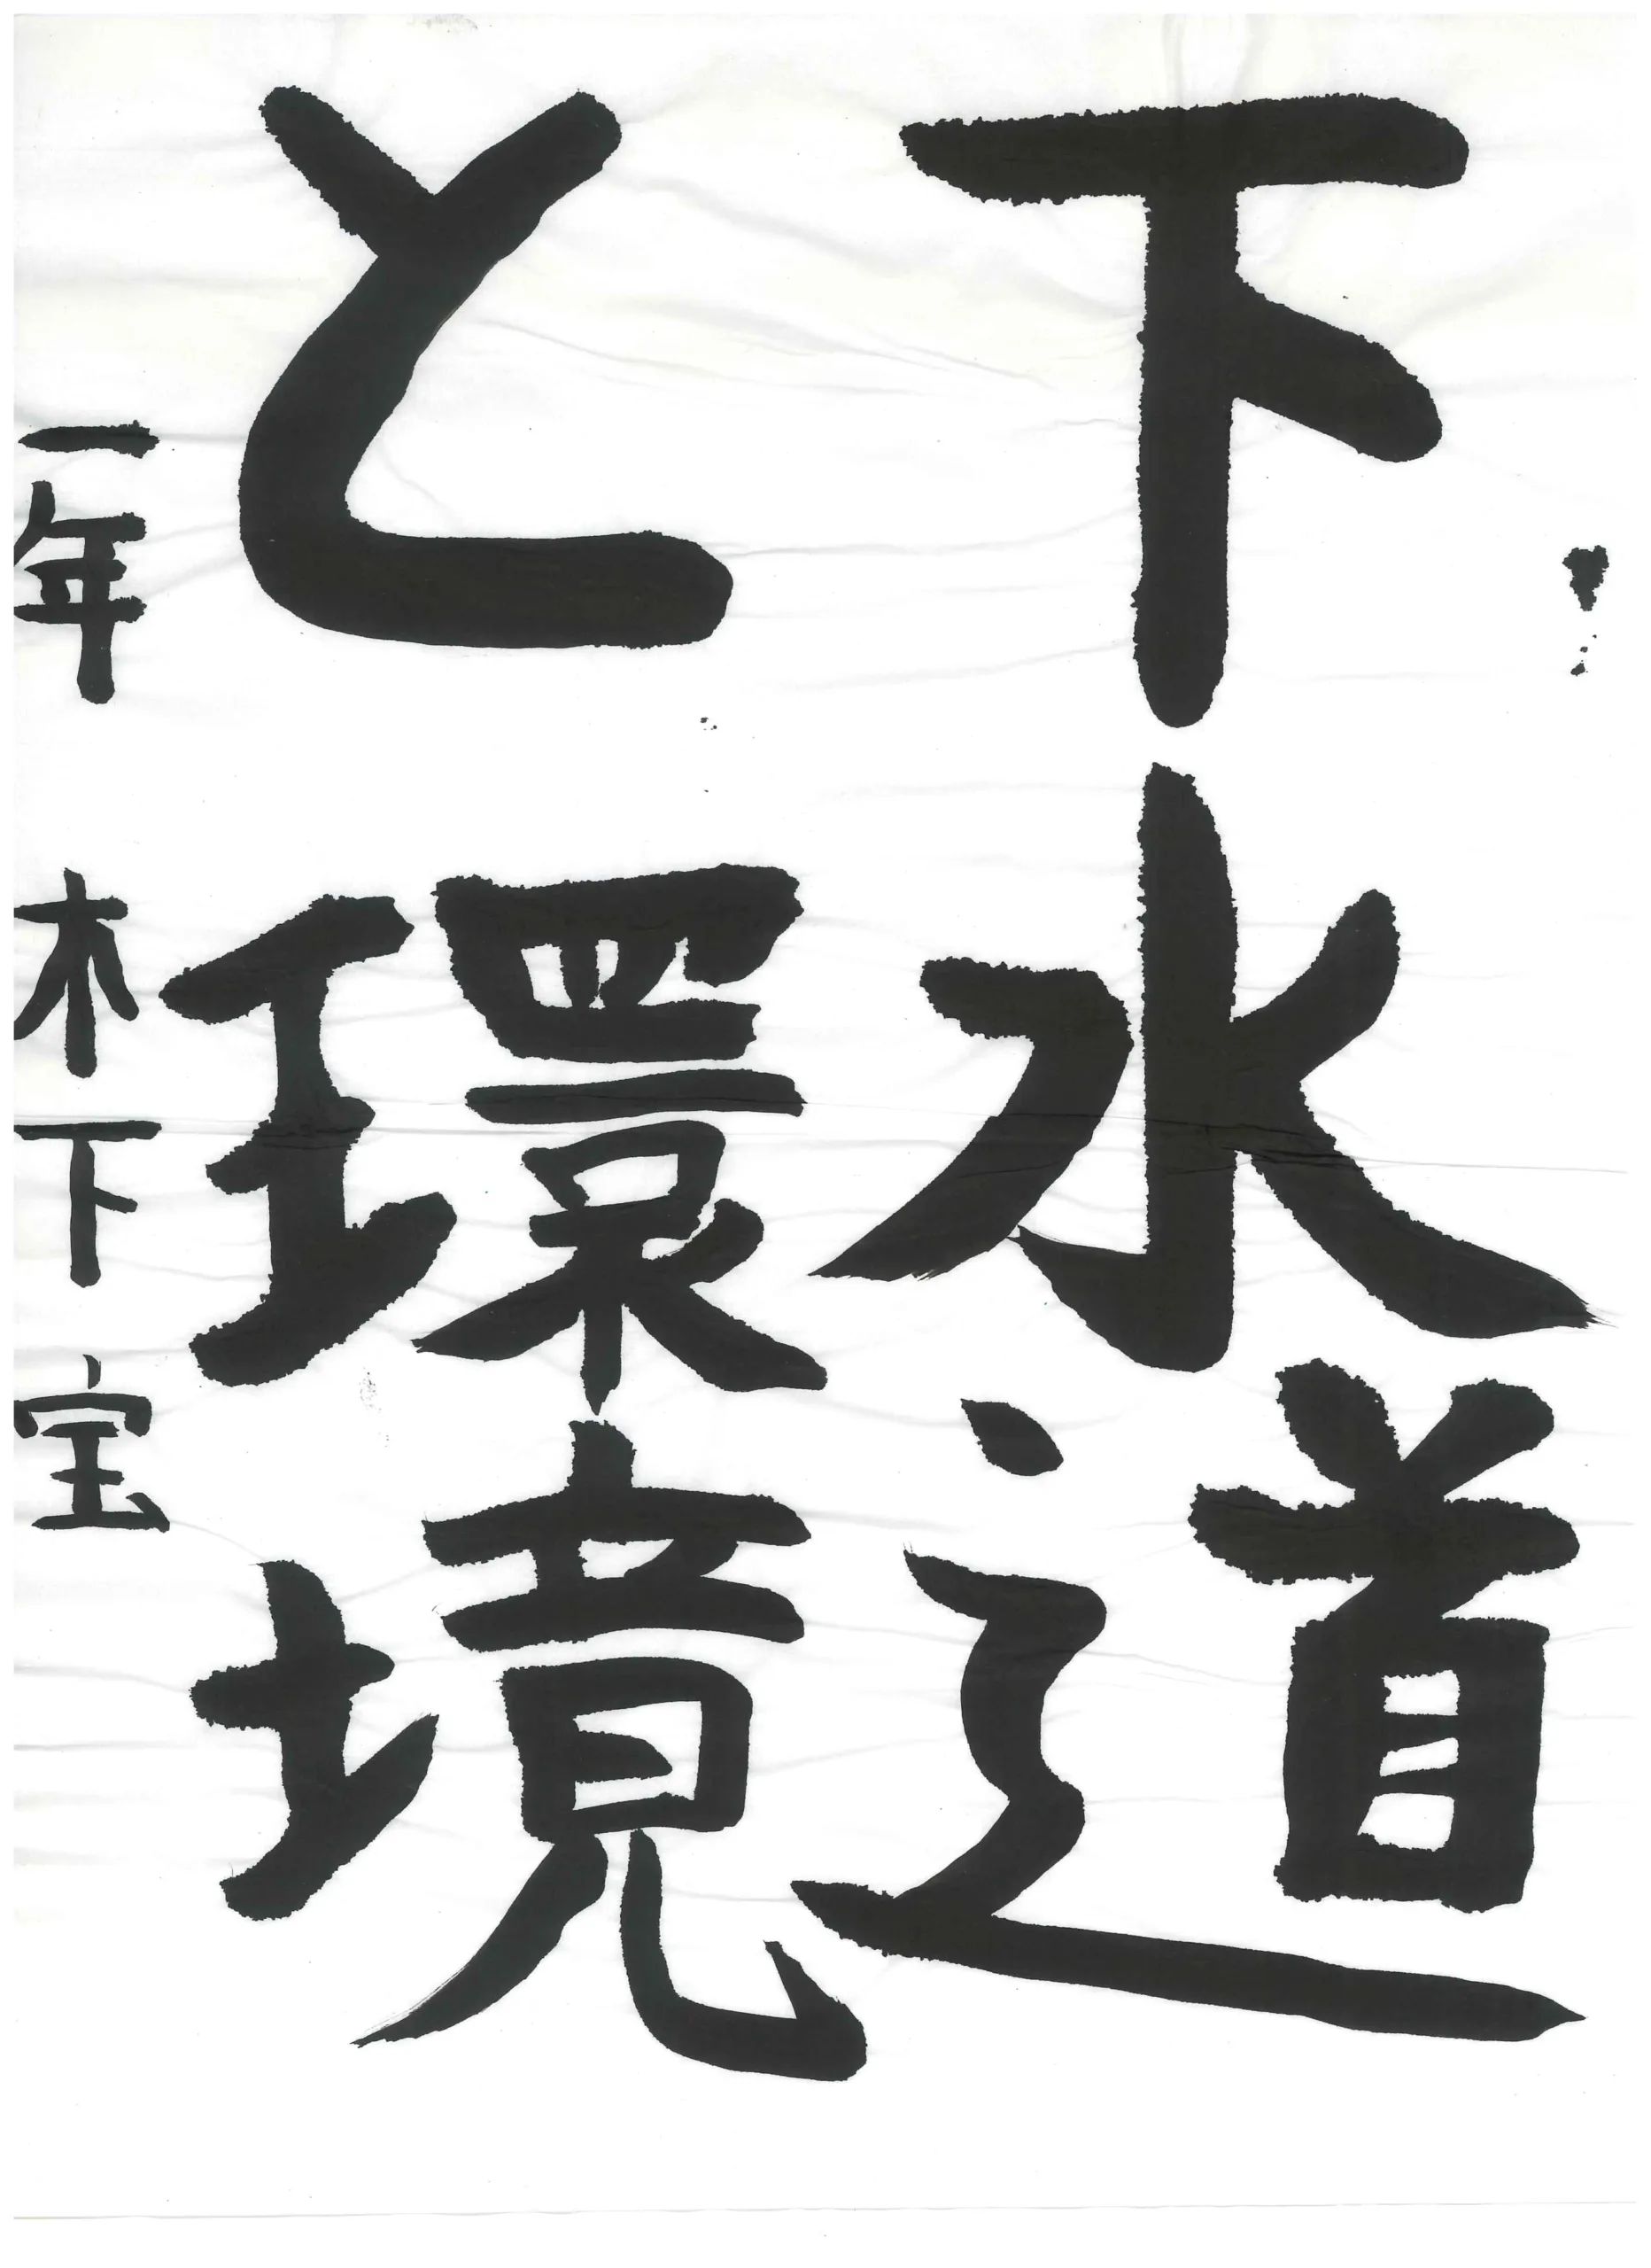 下水道
と環境
一年 木下宝